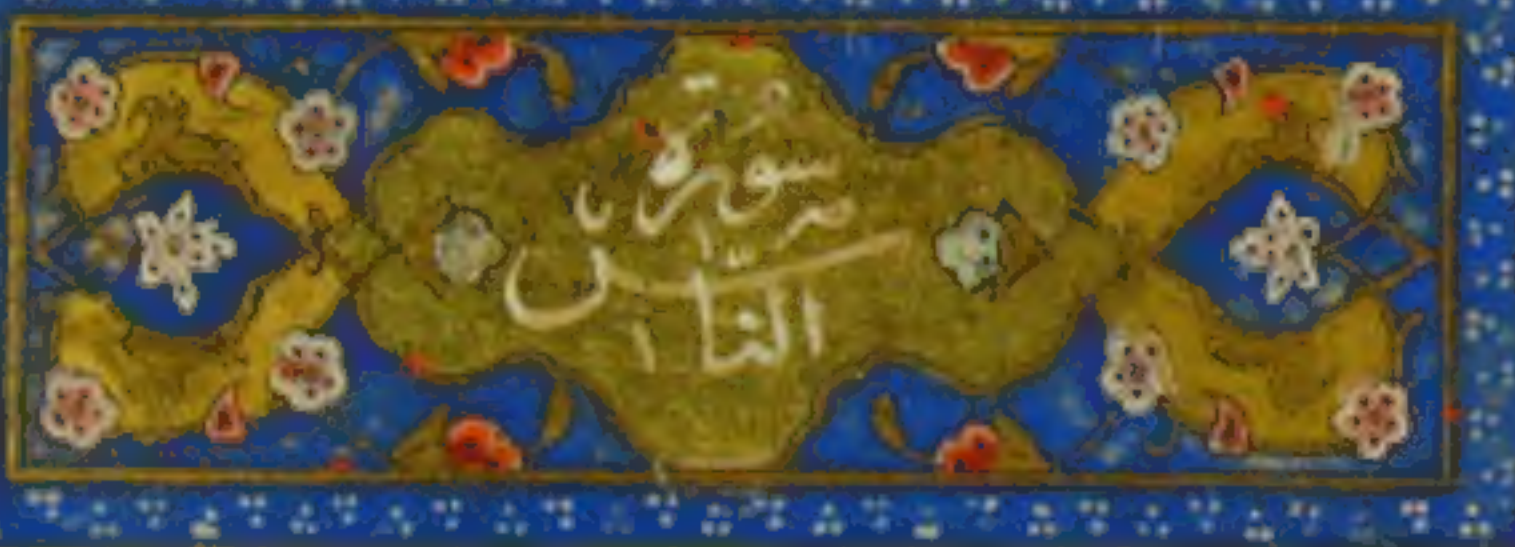 سورة
الناس